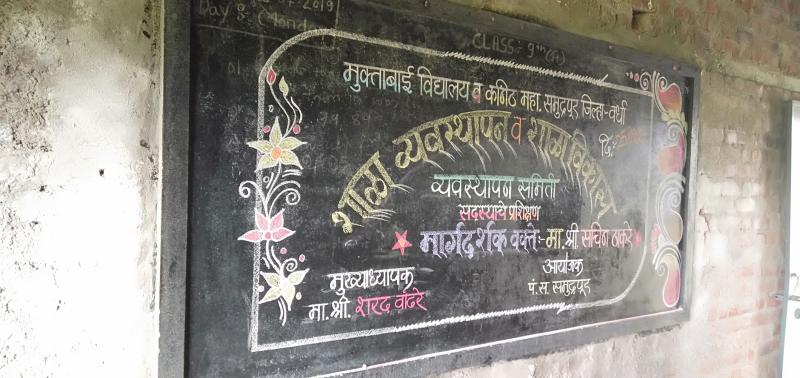 2019
Day :- (Monday
CLASS:- 9th (A)
मुक्ताबाई विद्यालय व कनिठ महा. समुद्रपूर जिल्हा-वर्धा
दि:-
शाळा व्यवस्थापन व शाळा विकास
व्यवस्थापन समिती
सदस्याचे प्रशिक्षण
मार्गदर्शक वक्ते:- मा. श्री सचिन ठाकरे
मुख्याध्यापक
मा. श्री. शरद वांढरे
आयोजक
पं. स. समुद्रपूर